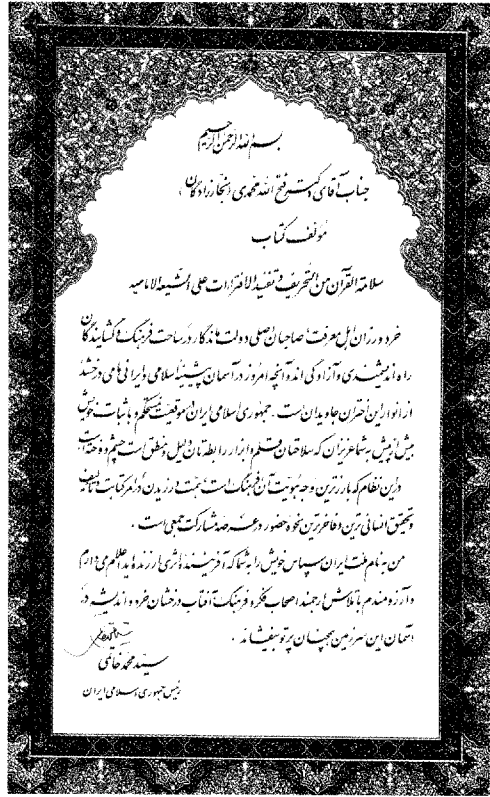 بسم الله الرحمن الرحیم
جناب آقای دکتر فتح الله محمدی (نجارزادگان)
مؤلف کتاب
سلامة القرآن من التحریف و تفنید الافتراءات علی الشیعة الامامیه
خردورزان اهل معرفت، صاحبان اصلی دولت ماندگار در ساحت فرهنگ و گشایندگان
راه اندیشمندی و آزادگی اند و آنچه امروز در آسمان پیشینهٔ اسلامی و ایرانی ما می درخشد
از انوار این اختران جاویدان است. جمهوری اسلامی ایران در موقعیت مستحکم و با ثبات خویش
بیش از پیش به شما عزیزان که سلاحتان قلم و ابزار رابطه تان دلیل و منطق است چشم دوخته است.
در این نظام که بارزترین وجه هویت آن فرهنگ است، همت ورزیدن در امر کتابت، تألیف
و تحقیق انسانی ترین و فاخرترین نحوهٔ حضور در عرصه مشارکت جمعی است.
من به نام ملت ایران سپاس خویش را به شما که آفرینندهٔ اثری ارزنده اید اعلام می دارم
و آرزومندم با تلاش ارجمند اصحاب فکر و فرهنگ آفتاب درخشان خرد و اندیشه در
آسمان این سرزمین همچنان پرتو بیفشاند.
سید محمد خاتمی
رئیس جمهوری اسلامی ایران